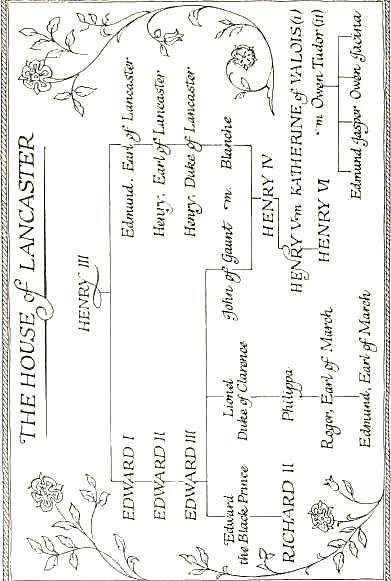 THE HOUSE of LANCASTER
HENRY III
EDWARD I
Edmund, Earl of Lancaster
EDWARD II
Henry, Earl of Lancaster
EDWARD III
Henry, Duke of Lancaster
Edward
the Black Prince
Lionel
Duke of Clarence
John of Gaunt m. Blanche
RICHARD II
Philippa
HENRY IV
Roger, Earl of March
HENRY V m KATHERINE of VALOIS (i)
m Owen Tudor (ii)
HENRY VI
Edmund, Earl of March
Edmund Jasper Owen Jacina